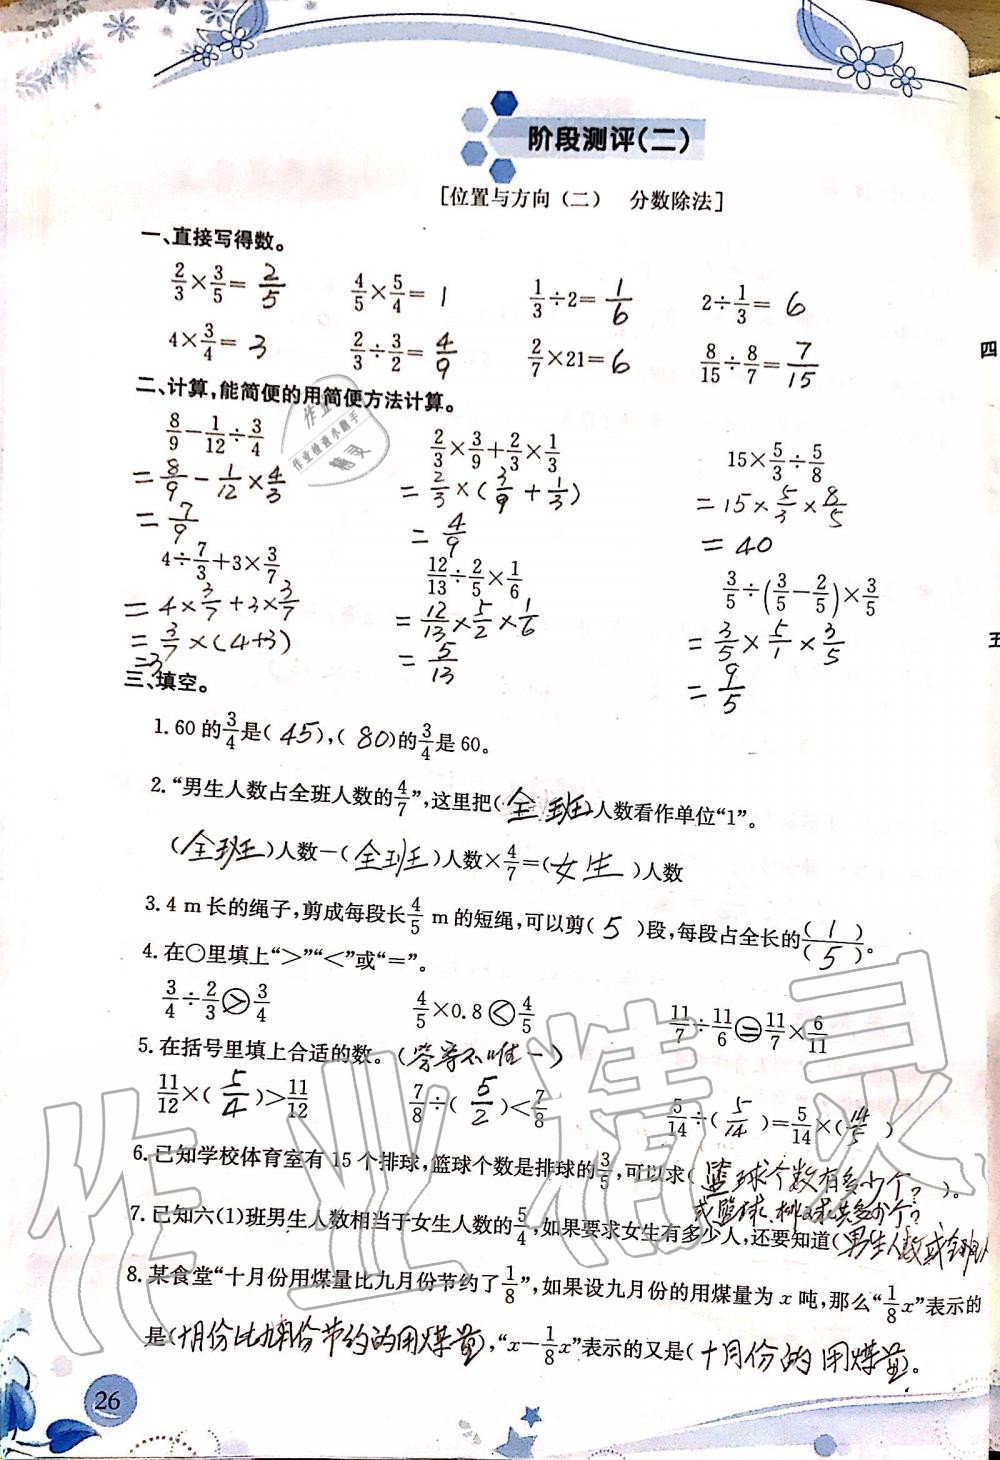 阶段测评(二)
[位置与方向(二) 分数除法]
一、直接写得数。
2/3×3/5= 2/5 4/5×5/4= 1 1/3÷2= 1/6 2÷1/3= 6
4×3/4= 3 2/3÷3/2= 4/9 2/7×21= 6 8/15÷8/7= 7/15
二、计算,能简便的用简便方法计算。
8/9-1/12÷3/4 2/3×3/9+2/3×1/3 15×5/3÷5/8
=8/9-1/12×4/3 =2/3×(3/9+1/3) =15×5/3×8/5
=7/9 =4/9 =40
4÷7/3+3×3/7 12/13÷2/5×1/6 3/5÷(3/5-2/5)×3/5
=4×3/7+3×3/7 =12/13×5/2×1/6 =3/5×5/1×3/5
=3/7×(4+3) =5/13 =9/5
=3
三、填空。
1.60的3/4是(45),(80)的3/4是60。
2.“男生人数占全班人数的4/7”,这里把(全班)人数看作单位“1”。
(全班)人数-(全班)人数×4/7=(女生)人数
3.4 m长的绳子,剪成每段长4/5 m的短绳,可以剪(5)段,每段占全长的(1)/(5)。
4.在○里填上“>”“<”或“=”。
3/4÷2/3>3/4 4/5×0.8<4/5 11/7÷11/6=11/7×6/11
5.在括号里填上合适的数。(答案不唯一)
11/12×(5/4)>11/12 7/8÷(5/2)<7/8 5/14÷(5/14)=5/14×(14/5)
6.已知学校体育室有15个排球,篮球个数是排球的3/5,可以求(篮球个数有多少个?)。
或篮球、排球共多少个?
7.已知六(1)班男生人数相当于女生人数的5/4,如果要求女生有多少人,还要知道(男生人数或全班人
8.某食堂“十月份用煤量比九月份节约了1/8”,如果设九月份的用煤量为x吨,那么“1/8x”表示的
是(十月份比九月份节约的用煤量),“x-1/8x”表示的又是(十月份的用煤量)。
26
四
五
作业检查小助手
精灵
作业精灵